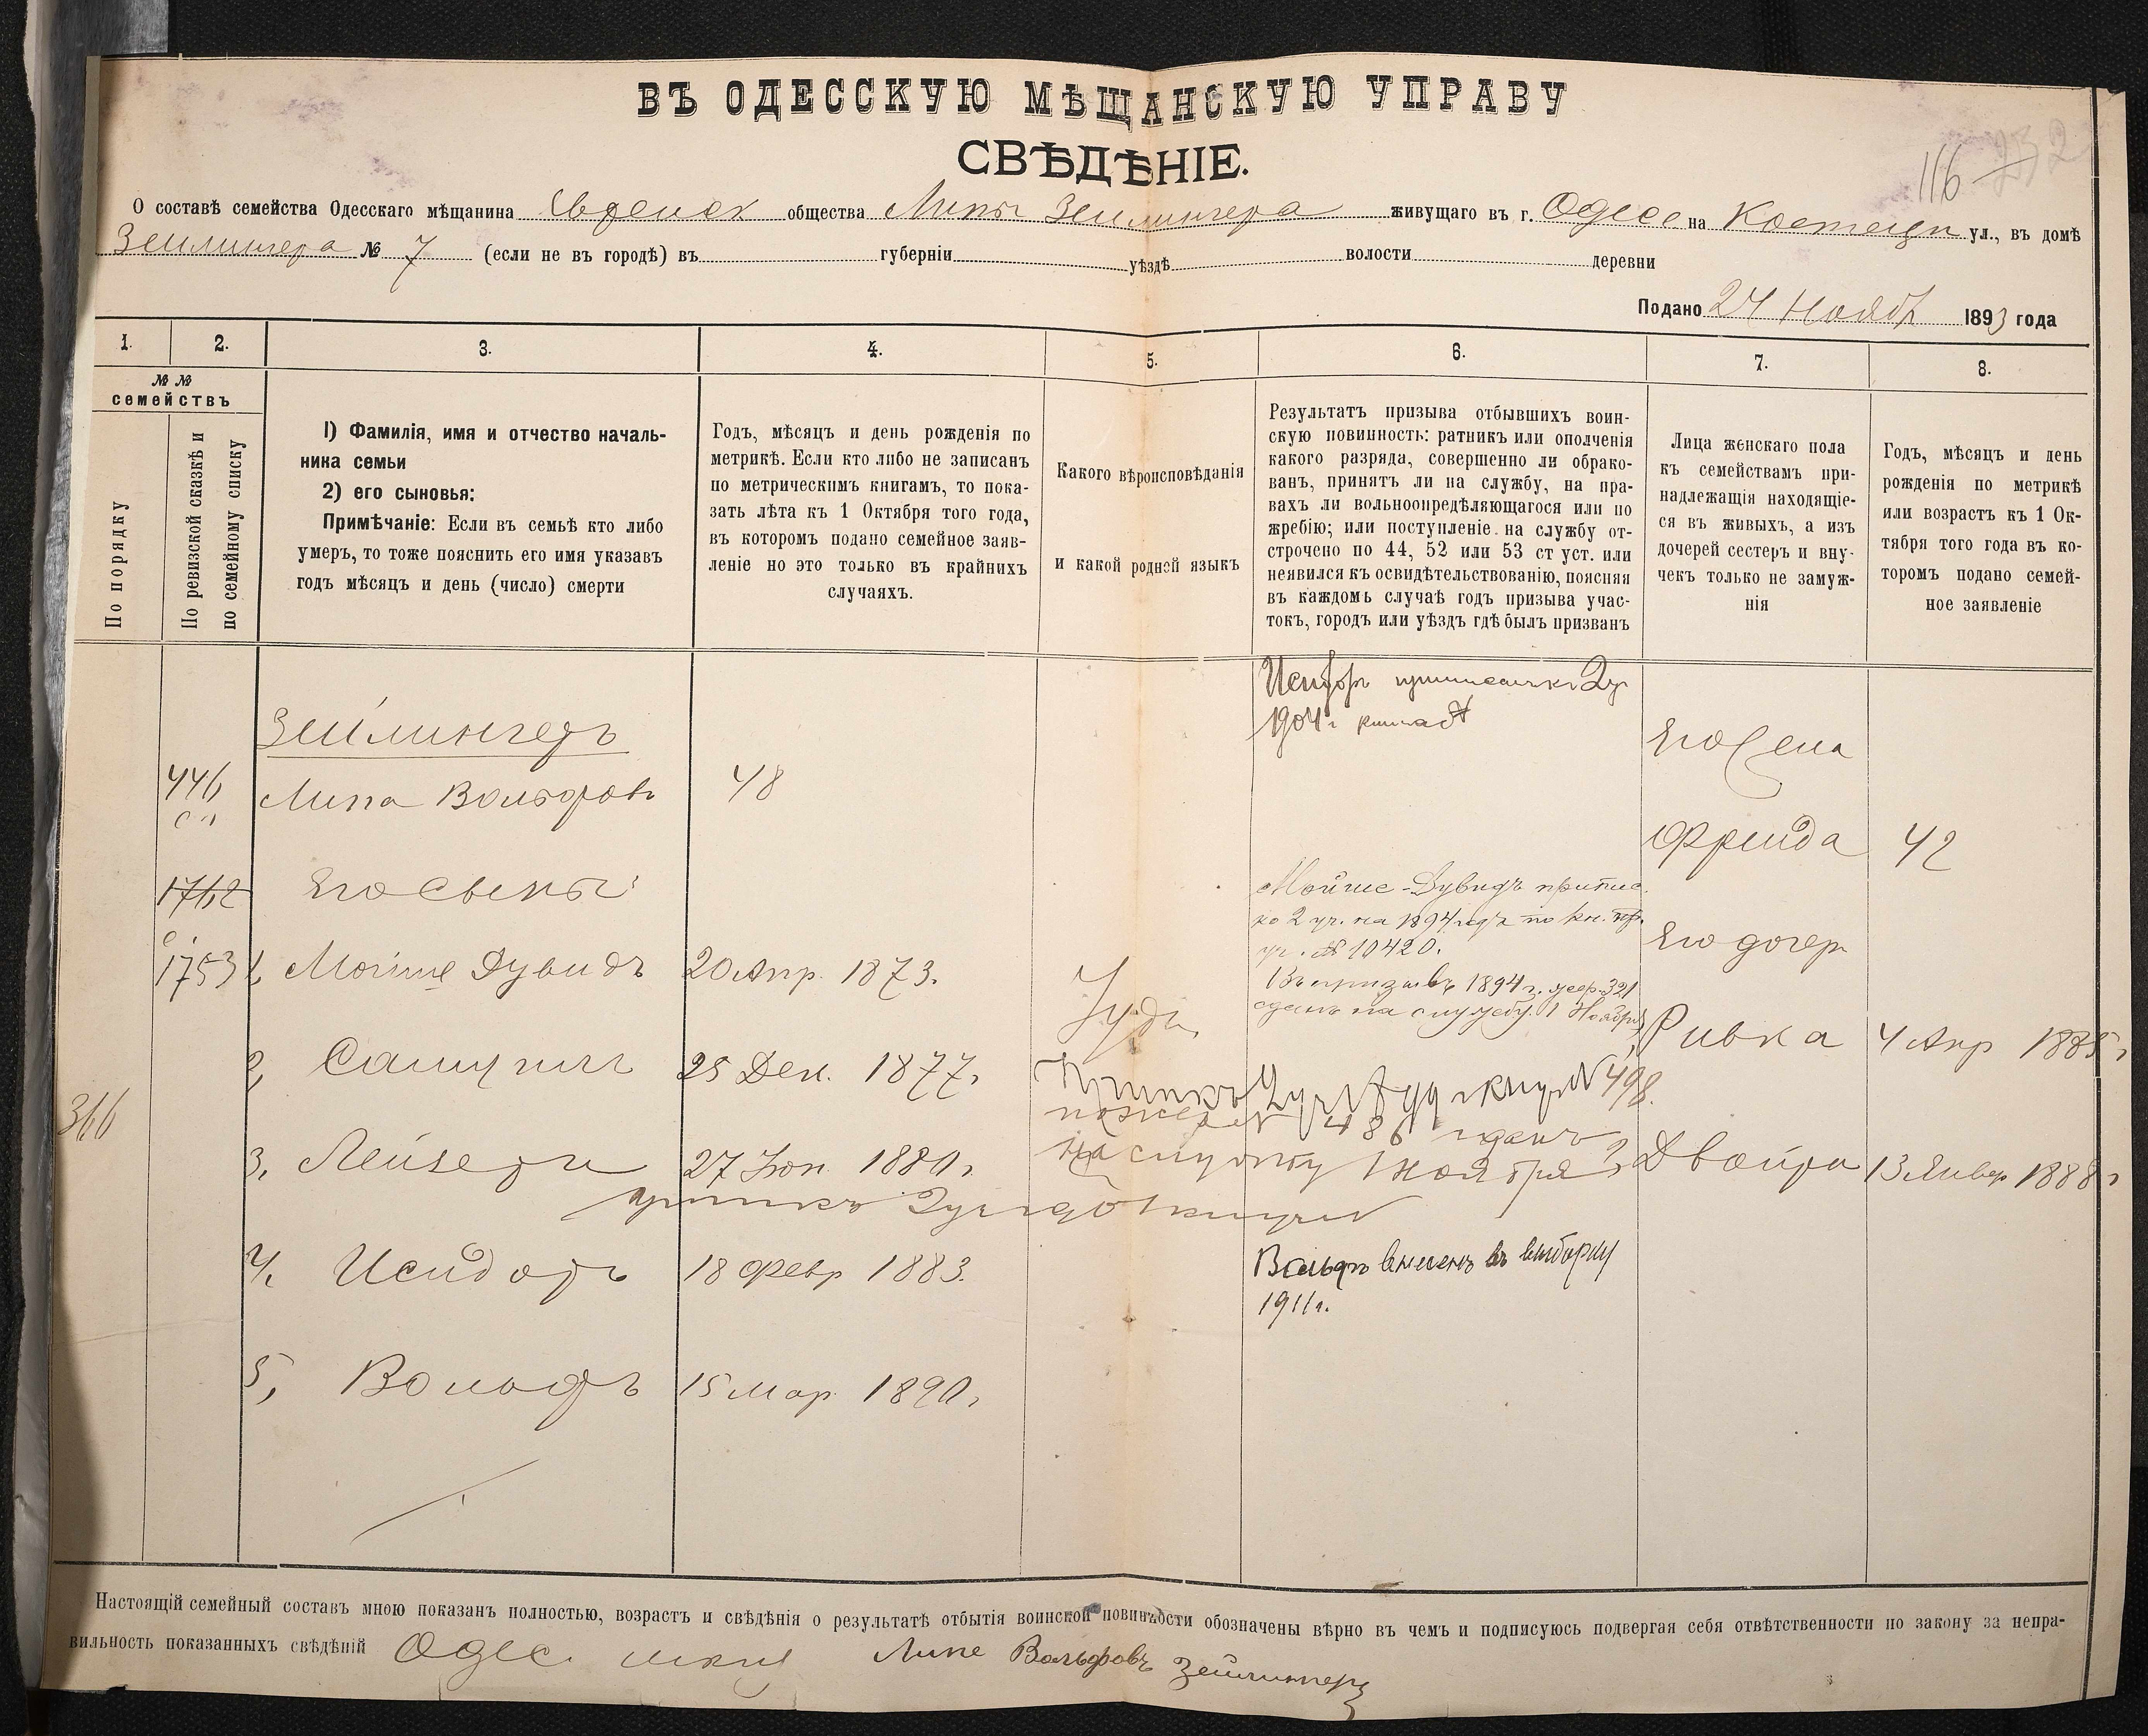 ВЪ ОДЕССКУЮ МѢЩАНСКУЮ УПРАВУ
СВѢДѢНІЕ.
116
О составѣ семейства Одесскаго мѣщанина общества Липы Зейлингера живущаго въ г. Одесс на ул., въ домѣ
Зейлингера № 7 (если не въ городѣ) въ губерніи уѣздѣ волости деревни
Подано 24 Нояб 1893 года
1. 2. 3. 4. 5. 6. 7. 8.
№ №
семействъ
По порядку
По ревизской сказкѣ и
по семейному списку
1) Фамилія, имя и отчество началь-
ника семьи
2) его сыновья:
Примѣчаніе: Если въ семьѣ кто либо
умеръ, то тоже пояснить его имя указавъ
годъ мѣсяцъ и день (число) смерти
Годъ, мѣсяцъ и день рожденія по
метрикѣ. Если кто либо не записанъ
по метрическимъ книгамъ, то пока-
зать лѣта къ 1 Октября того года,
въ которомъ подано семейное заяв-
леніе но это только въ крайнихъ
случаяхъ.
Какого вѣроисповѣданія
и какой родной языкъ
Результатъ призыва отбывшихъ воин-
скую повинность: ратникъ или ополченія
какого разряда, совершенно ли обрако-
ванъ, принятъ ли на службу, на пра-
вахъ ли вольноопредѣляющагося или по
жребію; или поступленіе на службу от-
строчено по 44, 52 или 53 ст уст. или
неявился къ освидѣтельствованію, поясняя
въ каждомъ случаѣ годъ призыва учас-
токъ, городъ или уѣздъ гдѣ былъ призванъ
Лица женскаго пола
къ семействамъ при-
надлежащія находящіе-
ся въ живыхъ, а изъ
дочерей сестеръ и вну-
чекъ только не замуж-
нія
Годъ, мѣсяцъ и день
рожденія по метрикѣ
или возрастъ къ 1 Ок-
тября того года въ ко-
торомъ подано семей-
ное заявленіе
1904 г
Зейлингеръ
Его жена
446 Липа Вольфовъ 48
Фрейда 42
1762 Его сыны:
Мойше-Дувидъ припис.
ко 2 уч. на 1894 годъ по кн. пр.
уч. № 10420.
Его дочери
1753 1, Мойше Дувидъ 20 Апр. 1873.
Іуд.
Въ призывъ 1894 г. жер. 321
сданъ на службу 1 Ноября
Ривка 4 Апр 1885 г
2, Самуилъ 25 Дек. 1877 г
498.
366
на службу 1 ноября
3, Лейзеръ 27 Іюн 1880 г
Двойра 13 Январ 1888 г
4. Исидоръ 18 Февр 1883.
Вольфъ внесенъ въ выборку
1911 г.
5, Вольфъ 15 Мар 1890 г
Настоящій семейный составъ мною показанъ полностью, возрастъ и свѣдѣнія о результатѣ отбытія воинской повинности обозначены вѣрно въ чемъ и подписуюсь подвергая себя отвѣтственности по закону за непра-
вильность показанныхъ свѣдѣній Одес. Липе Вольфовъ Зейлингеръ